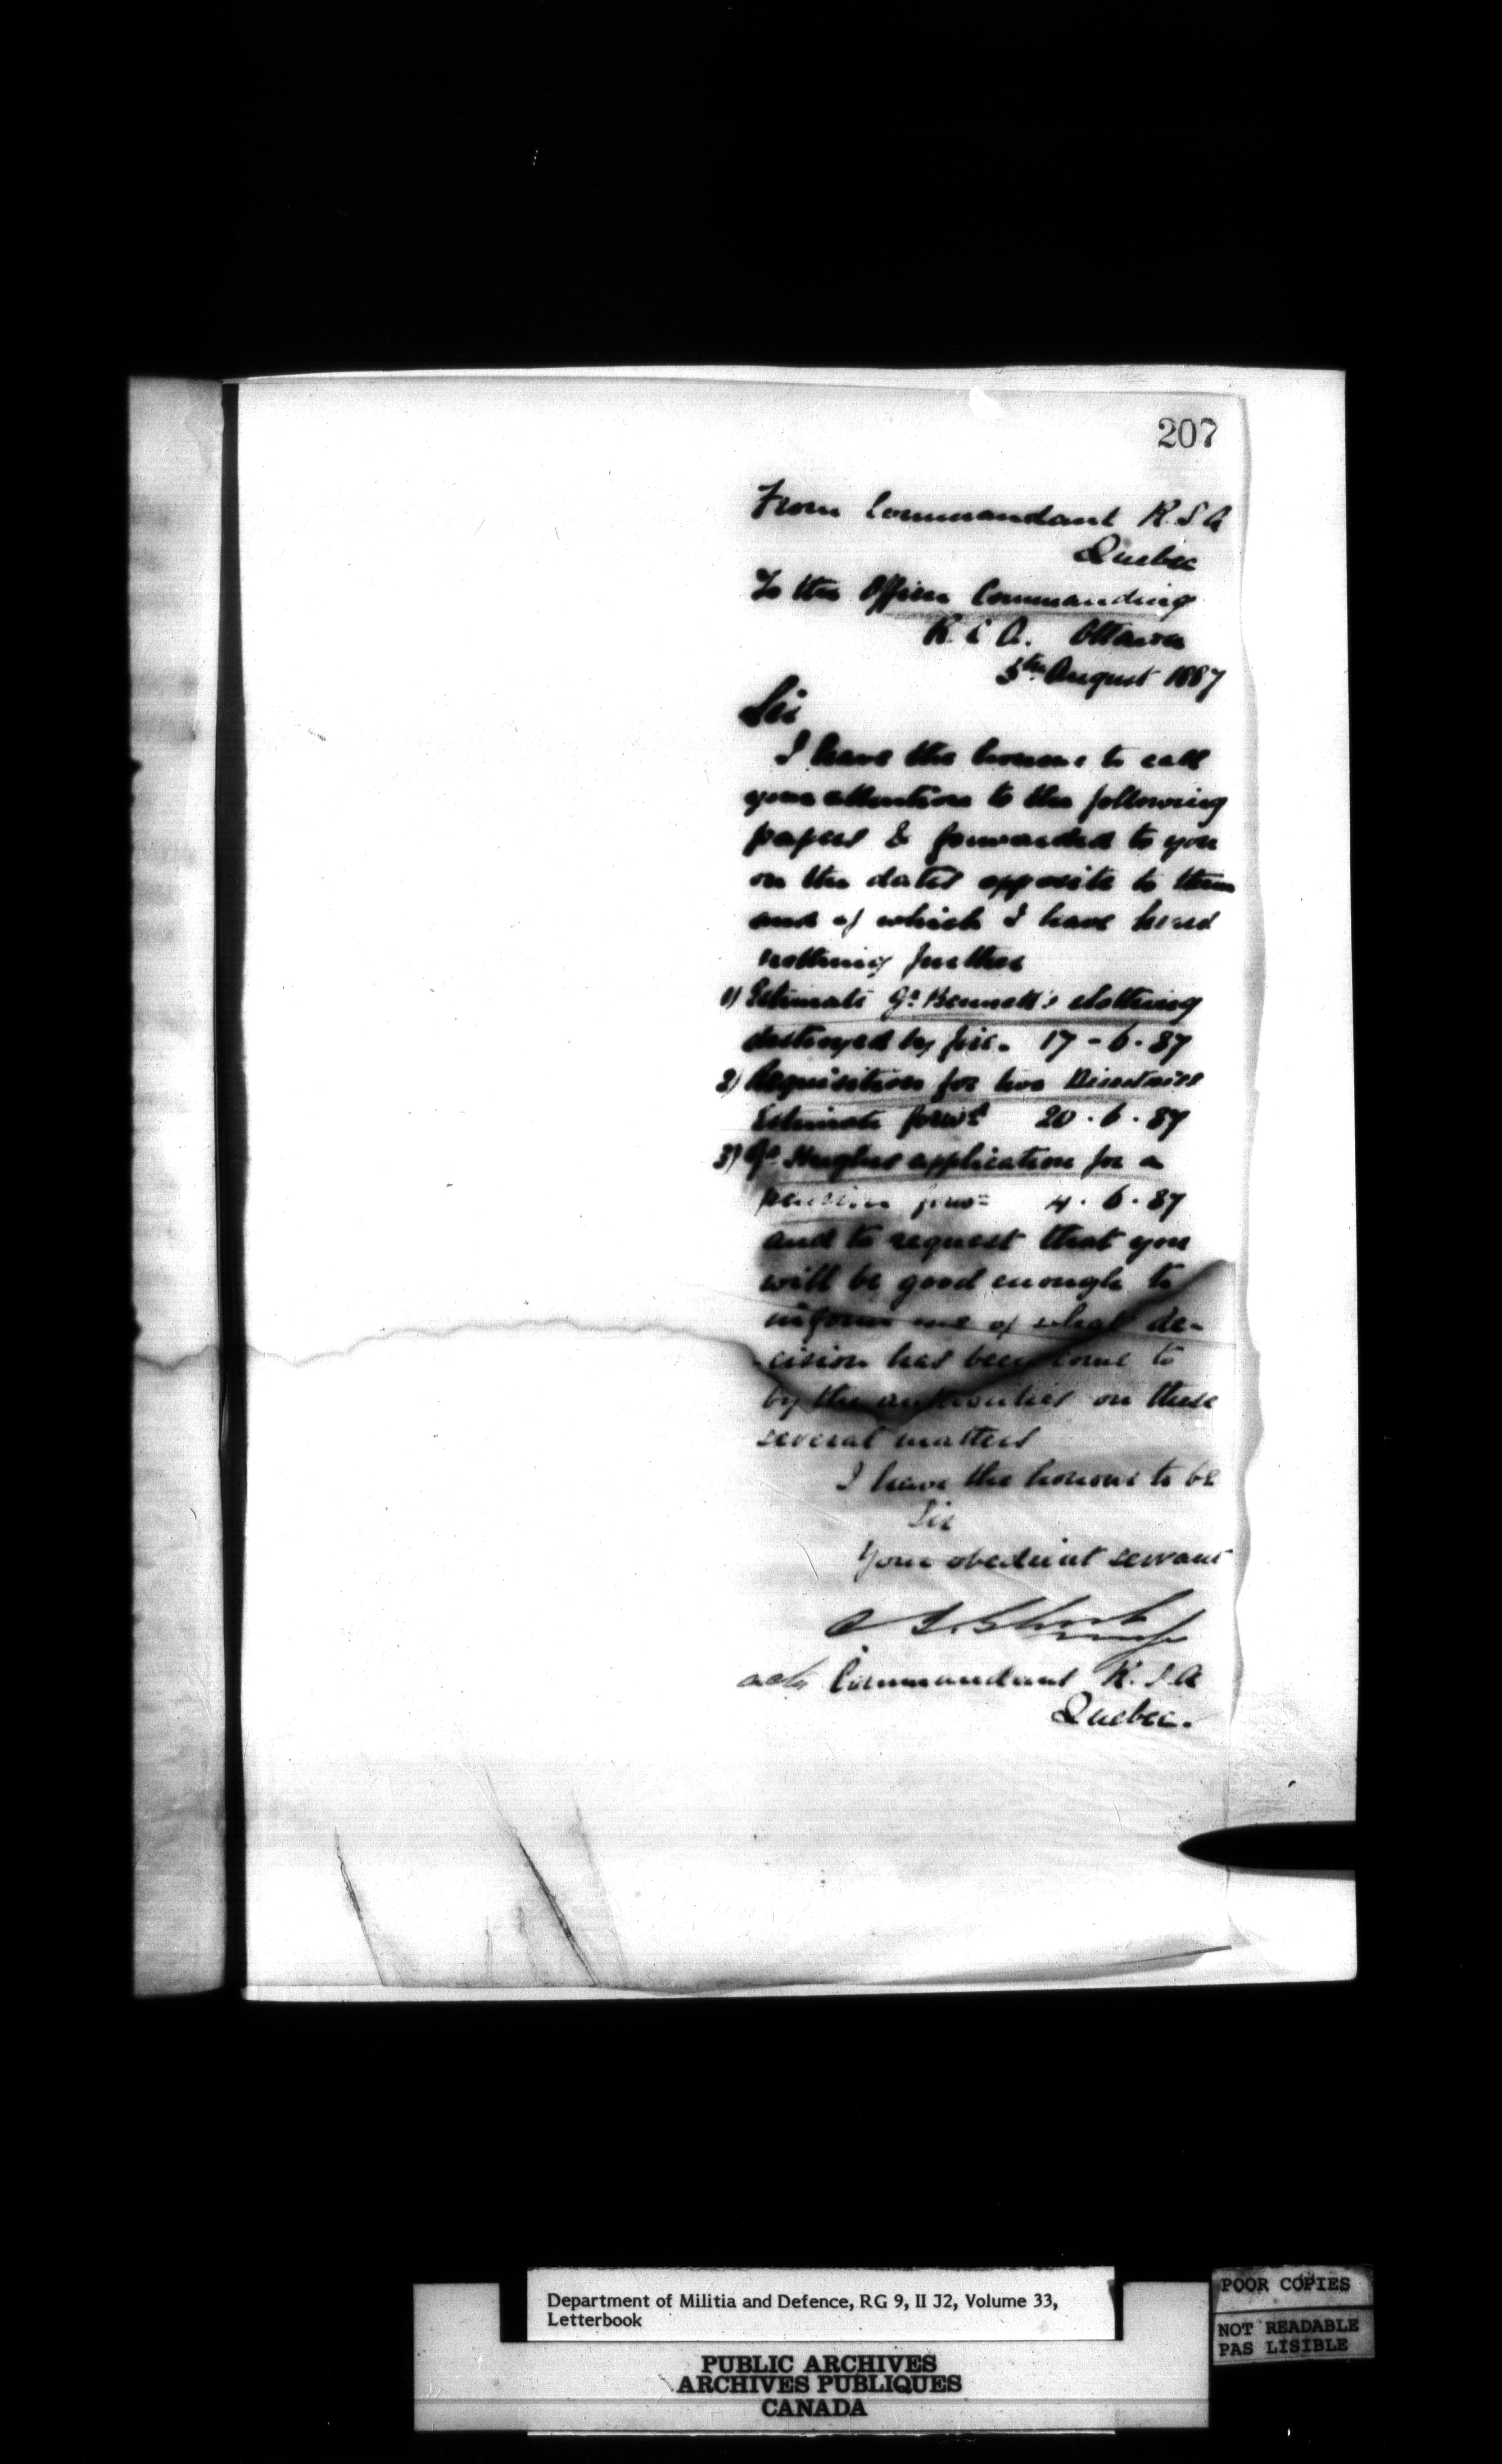 207
From Commandant R.S.A
Quebec
To the Officer Commanding
R.S.A. Ottawa
5th August 1887
Sir
I have the honour to call
your attention to the following
papers & forwarded to you
on the dates opposite to them
and of which I have heard
nothing further
1) Estimate Gr Bennett's clothing
destroyed by fire. 17-6.87
2) Requisition for two Directories
Estimate forwd 20.6.87
3) Gr Hughes application for a
pension forwd 4.6.87
and to request that you
will be good enough to
inform me of what de-
cision has been come to
by the authorities on these
several matters
I have the honour to be
Sir
Your obedient servant
Commandant R.S.A
Quebec.
Department of Militia and Defence, RG 9, II J2, Volume 33,
Letterbook
PUBLIC ARCHIVES
ARCHIVES PUBLIQUES
CANADA
POOR COPIES
NOT READABLE
PAS LISIBLE